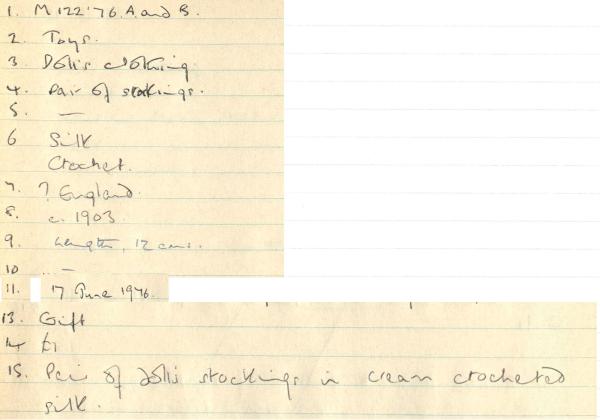 1. M 122'76. A and B.
2. Toys.
3 Doll's clothing.
4. Pair of stockings.
5. —
6 Silk
Crochet.
7. ? England.
8. c. 1903
9. Length, 12 cms.
10 —
11. 17 June 1976.
13. Gift
14 £1
15. Pair of doll's stockings in cream crocheted
silk.